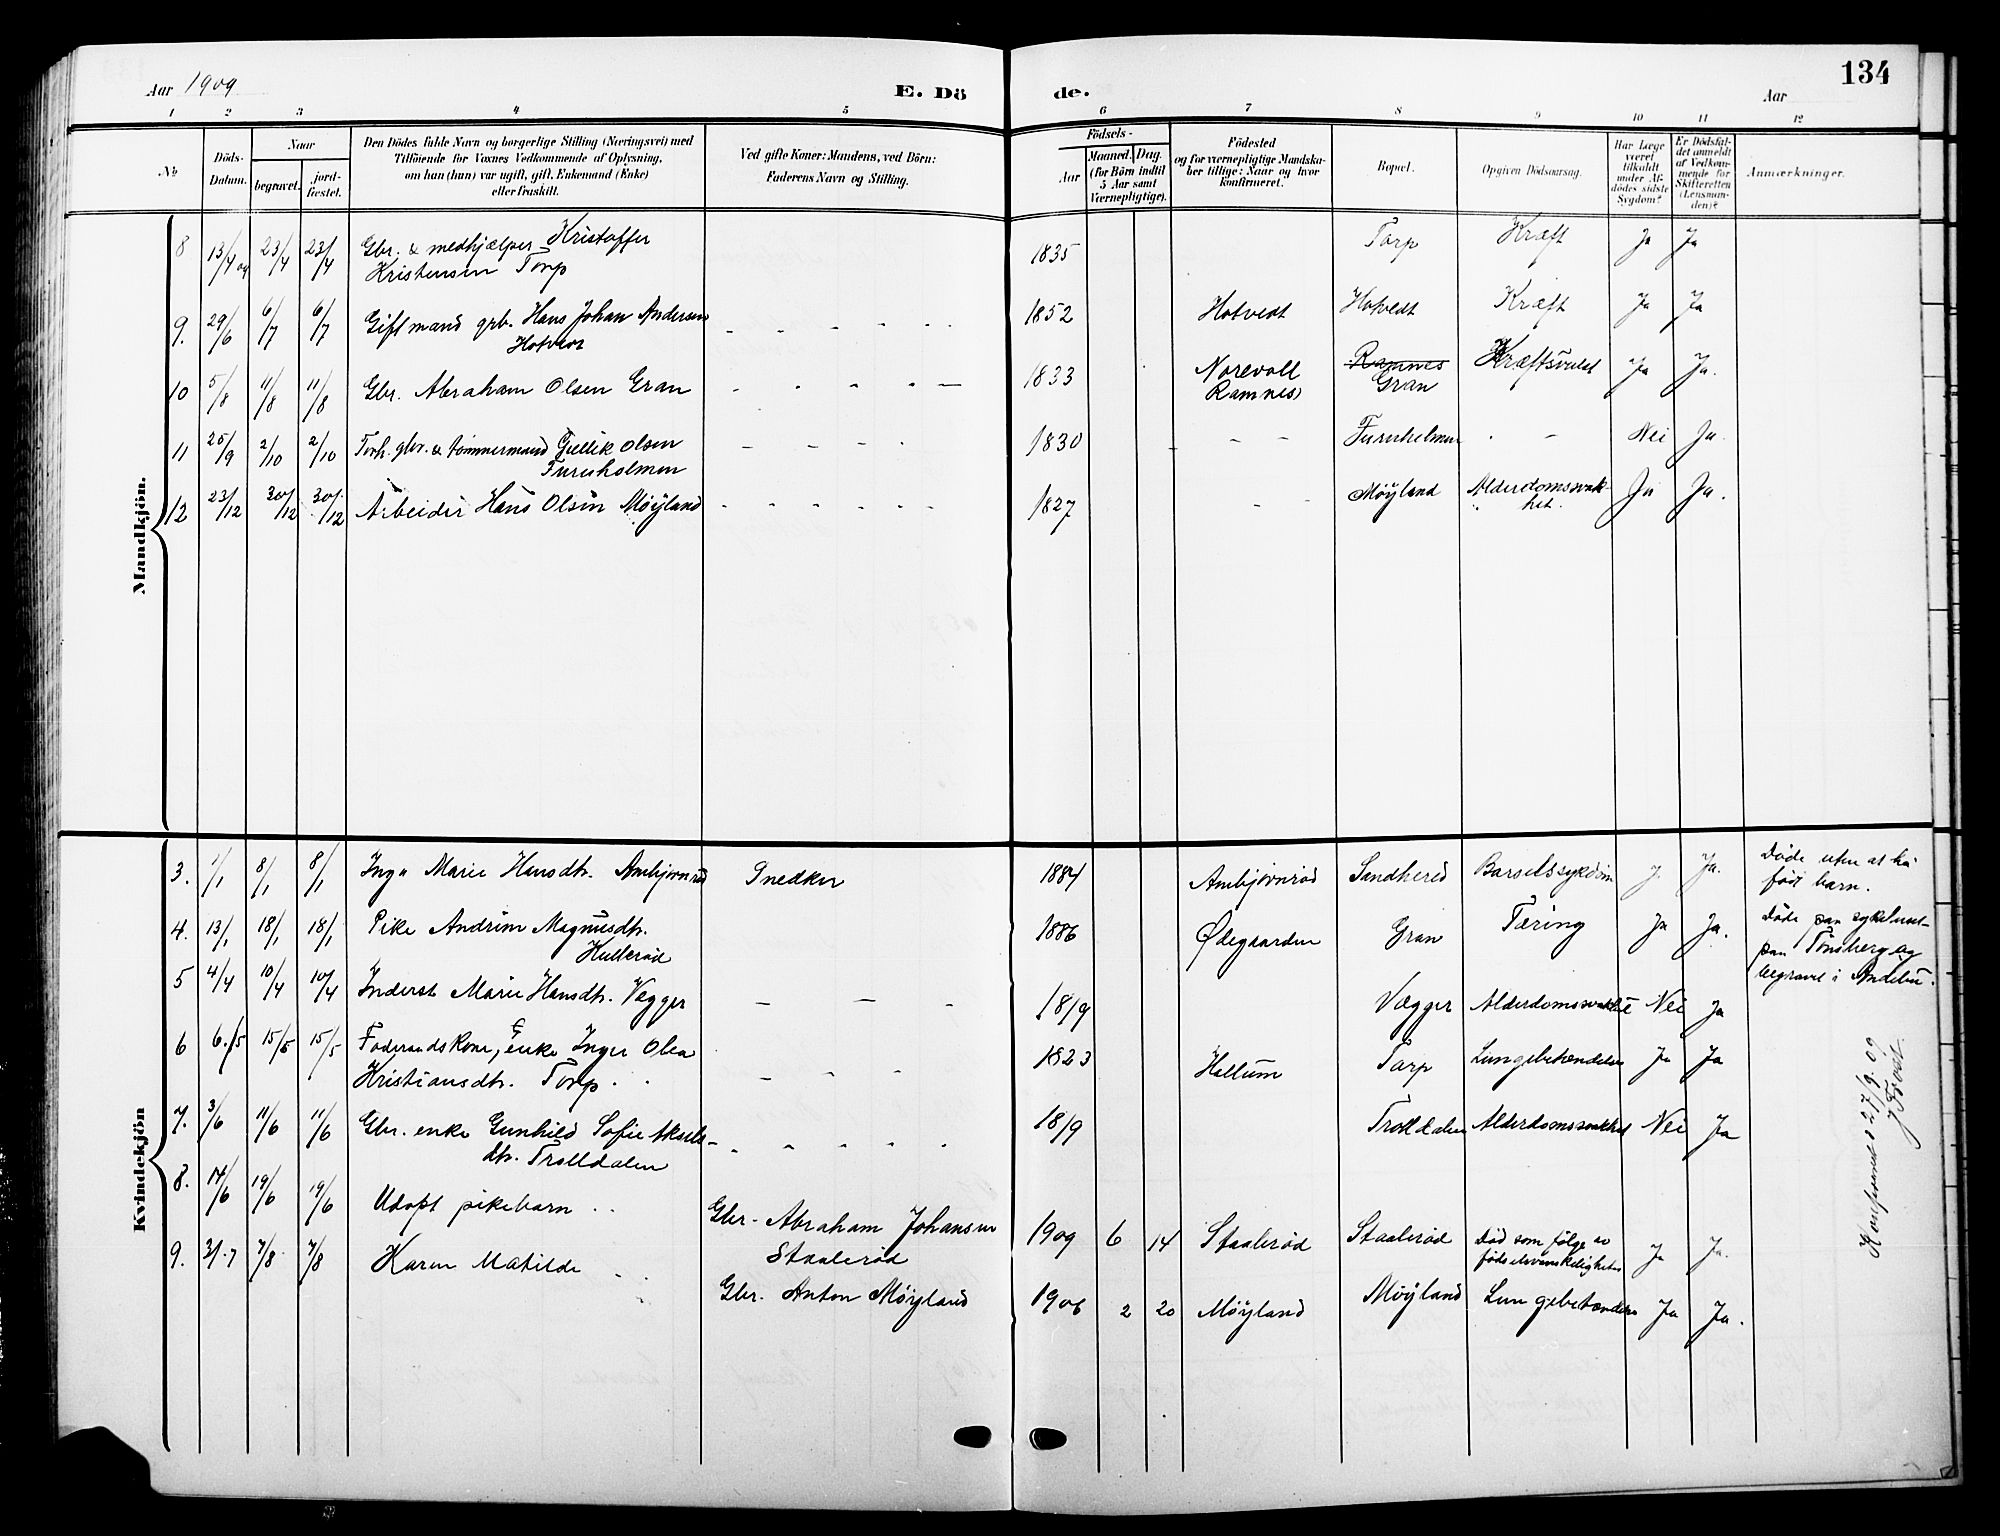 Aar 1909
E. Dö
de.
Aar
134
1 2 3 4 5 6 7 8 9 10 11 12
№
Döds-
Datum.
Naar
begravet.
jord-
fæstet.
Den Dödes fulde Navn og borgerlige Stilling (Næringsvei) med
Tilföiende for Voxnes Vedkommende af Oplysning,
om han (hun) var ugift, gift, Enkemand (Enke)
eller fraskilt.
Ved gifte Koner: Mandens, ved Börn:
Faderens Navn og Stilling.
Födsels-
Aar
Maaned. Dag.
(for Börn indtil
5 Aar samt
Værnepligtige).
Födested
og for værnepligtige Mandska-
ber tillige: Naar og hvor
konfirmeret.
Bopæl.
Opgiven Dödsaarsag.
Har Læge
været
tilkaldt
under Af-
dödes sidste
Sygdom?
Er Dödsfal-
det anmeldt
af Vedkom-
mende for
Skifteretten
(Lensman-
den)?
Anmærkninger.
Mandkjön.
8 13/4 09 23/4 23/4 Gbr. & medhjælper Kristoffer
Kristensen Torp
1835 Torp Kræft Ja Ja
9. 29/6 6/7 6/7 Gift mand grb. Hans Johan Andersen
Hotvedt
1852 Hotvedt Hotvedt Kræft Ja Ja
10 5/8 11/8 11/8 Gbr. Abraham Olsen Gran
1833 Norevoll
Ramnes
Ramnes
Gran
Kræftsvulst Ja Ja.
11 25/9 2/10 2/10 Forh. gbr. & tømmermand Gullik Olsen
Furuholmen
1830 - - Furuholmen - Nei Ja.
12 23/12 30/12 30/12 Arbeider Hans Olsen Møyland
1827 - - Møyland Alderdomssvak-
het. Ja Ja.
Kvindekjön
3. 1/1 8/1 8/1 Inga Marie Hansdtr. Ambjørnrød Snedker
1884 Ambjørnrød Sandherred Barselssykdom J. Ja. Døde uten at ha
født barn.
4. 13/1 18/1 18/1 Pike Andrine Magnusdtr.
Hullerød
1886 Ødegaarden Gran Tæring Ja Ja. Døde paa sykehuset
paa Tønsberg og
begravet i Andebu.
5 4/4 10/4 10/4 Inderst Marie Hansdtr. Vegger - - -
1819 Vægger Alderdomssvakhet Nei Ja
6 6./5 15/5 15/5 Foderaadskone, enke Inger Olea
Kristiansdtr. Torp.
1823 Hallum Torp Lungebetændelse Ja Ja
7. 3/6 11/6 11/6 Gbr. enke Gunhild Sofie Aksels-
dtr. Trolldalen
1819 Trolldalen Alderdomssvakhet Nei Ja
8. 14/6 19/6 19/6 Udøpt pikebarn Gbr. Abraham Johansen
Staalerød
1909 6 14 Staalerød Staalerød Død som følge av
fødselsvanskeligheter Ja Ja.
9. 31.7 7/8 7/8 Karen Matilde Gbr. Anton Møyland
1906 2 20 Møyland Møyland Lungebetændelse Ja Ja.
27/9. 09